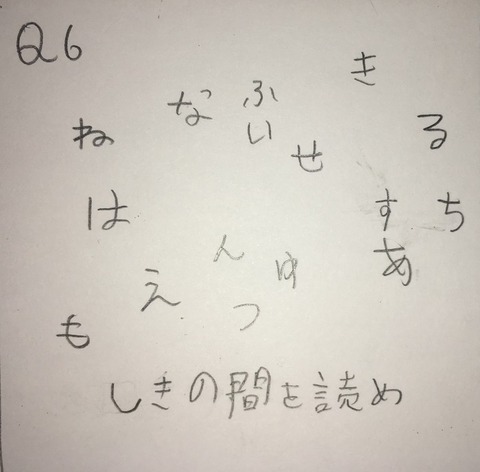 Q6
き
なふ
い
ねせる
はすち
んゆあ
えつ
も
しきの間を読め